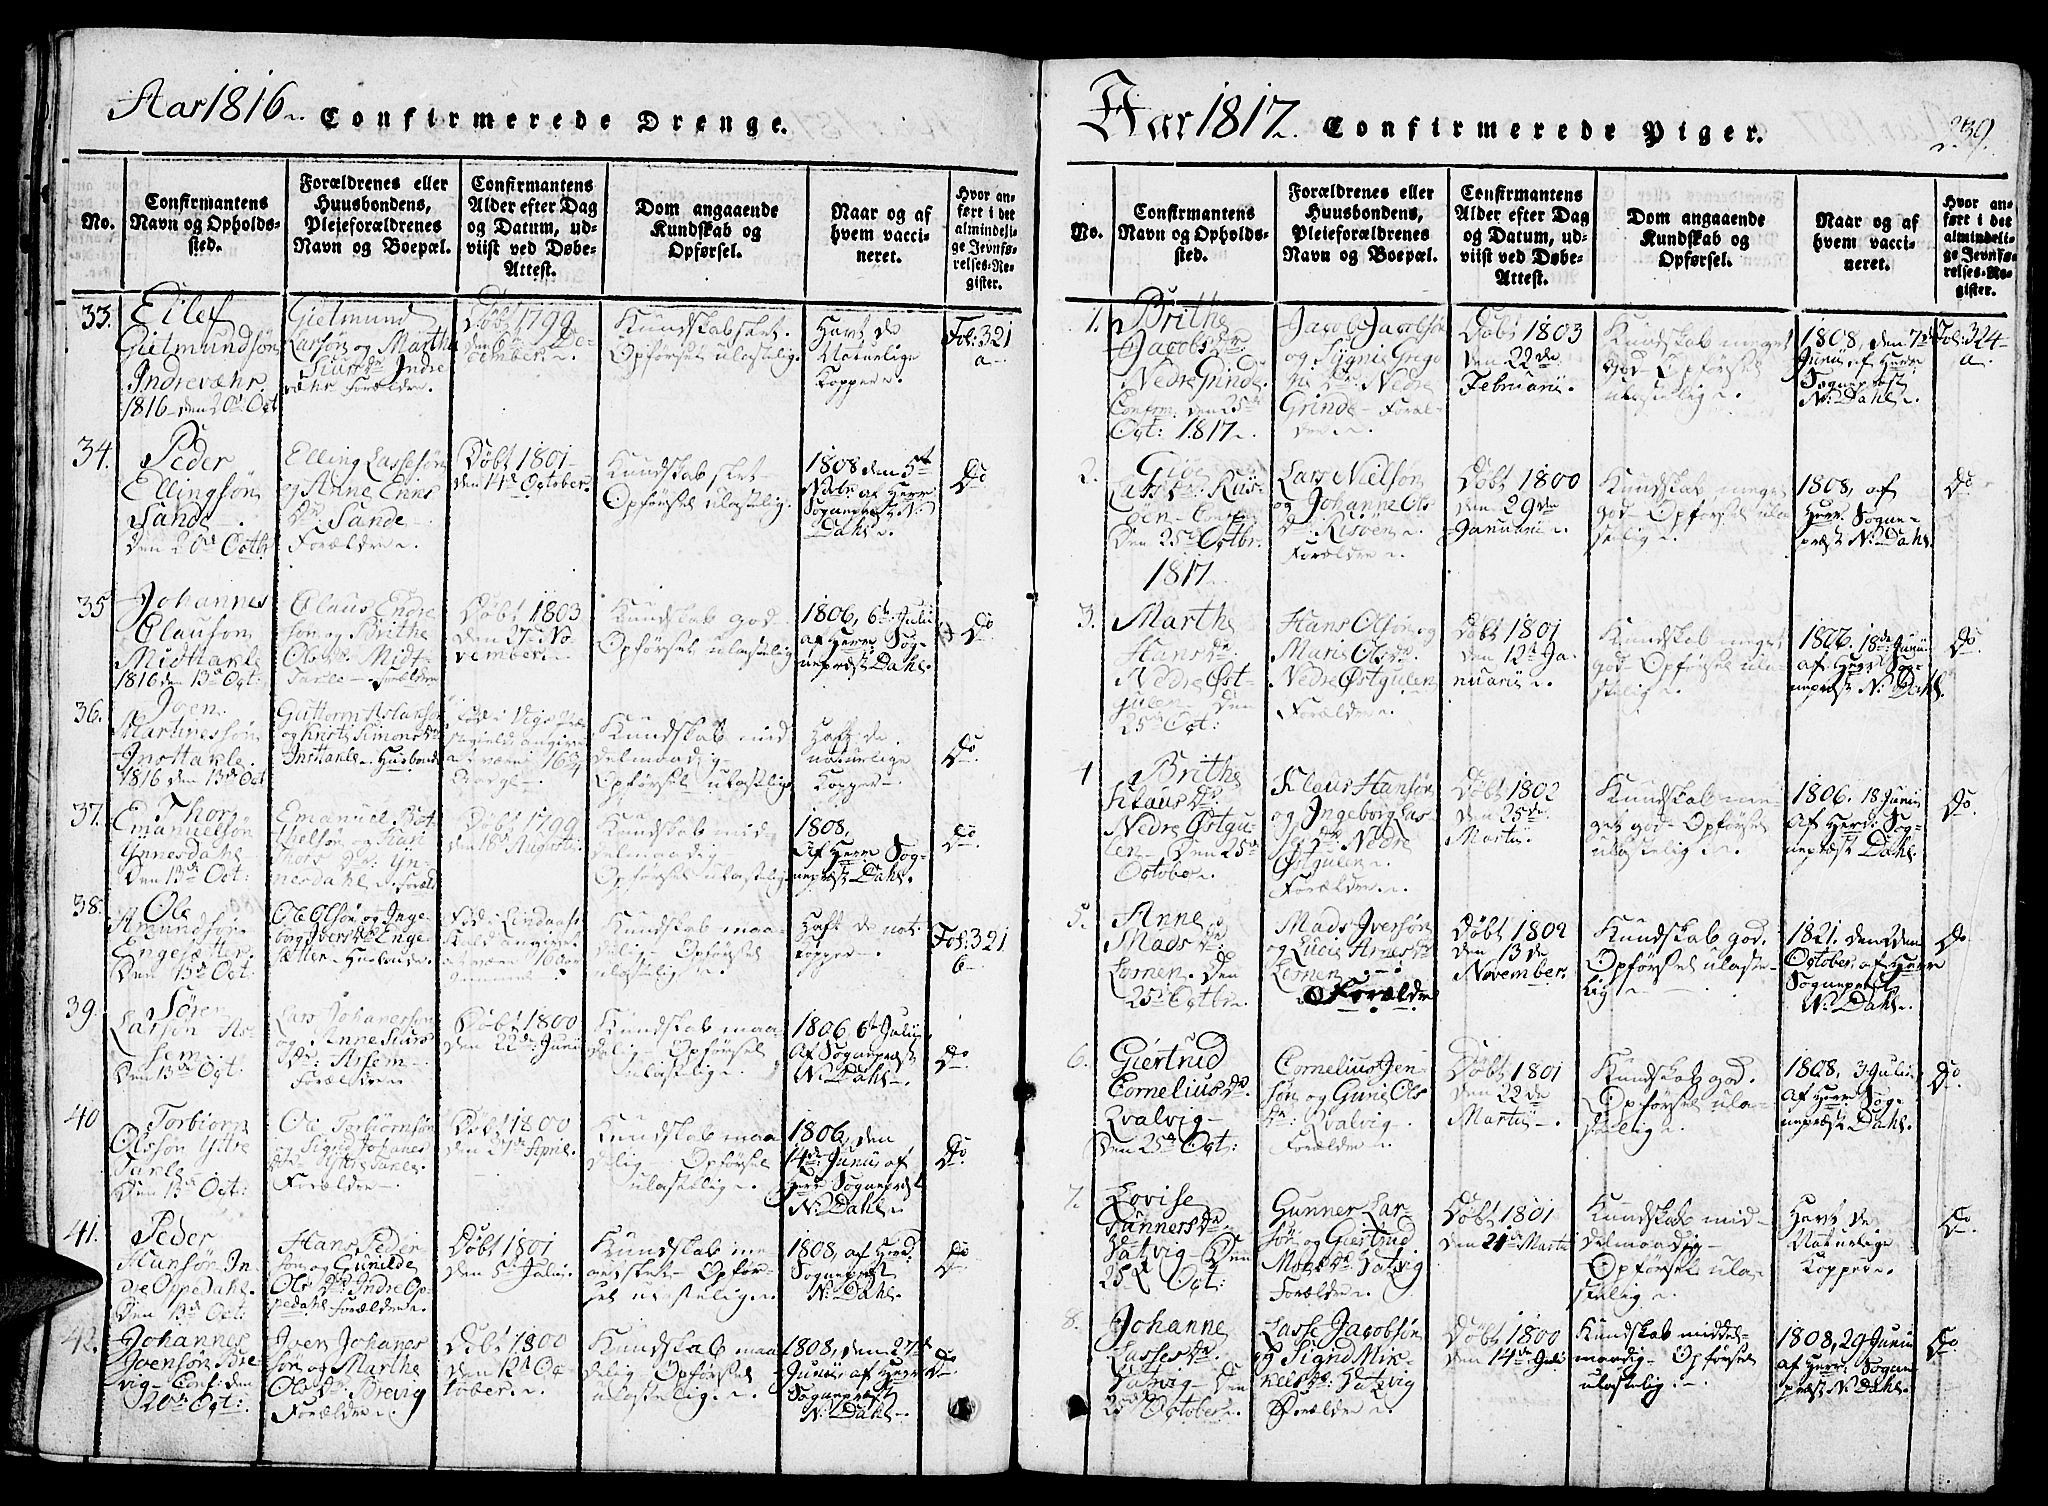 Aar 1816. Confirmerede Drenge.
No.
Confirmantens
Navn og Opholds-
sted.
Forældrenes eller
Huusbondens,
Pleieforældrenes
Navn og Boepæl.
Confirmantens
Alder efter Dag
og Datum, ud-
viist ved Døbe-
Attest.
Dom angaaende
Kundskab og
Opførsel.
Naar og af
hvem vacci-
neret.
Hvor an-
ført i det
almindeli-
ge Jevnfø-
relses-Re-
gister.
33.
Eilef
Gietmundsøn
Indrevæhr
1816 den 20d Oct
Gietmund
Larsøn og Marthe
Siursdr Indre
væhr Forældre
Døbt 1799
den De-
cember
Kundskab sket.
Opførsel ulastelig
Havt de
Naturlige
Kopper
Fol: 321
a
34.
Peder
Ellingsøn
Sande
Den 20d Octbr
Elling Lassesøn
og Anne Enies
Dr Sande
Forældre
Døbt 1801
den 14d October
Kundskab sket
Opførsel ulastelig
1808 den 5t
af Herr
Sognepræst N:
Dahl
Do
35
Johannes
Olausøn
Midttakle
1816 den 13d Oct:
Olaus Endre
søn og Brithe
Olsdr Midt-
takle Forældre
Døbt 1803
den 27de No-
vember
Kundskab god
Opførsel ulastelig
1806, 6te Julii
af Herr Sog-
nepræst Dahl.
Do
36.
Joen
Martinessøn
Insttakle
1816 den 13de Oct
Guttorm Aslaksøn
og Kirsti Simonsdr
Insttakle Husbond
Kundskab mid
delmaadig
Opførsel ulastelig
Haft de
naturlige
Kopper
Do
37.
Thor
Emanuelsøn
Ynnesdahl
Den 13d Oct:
Emanuel Bot
helsøn og Kari
Thors dr. Yn-
nesdahl Foræld
Døbt 1799
den 18d Augusti
Kundskab mid
delmaadig
Opførsel ulastelig
1808,
Af Herr Sog-
nepræst Dahl.
Do
38.
Ole
Amundsøn
Engesætter
Den 13d Oct:
Ole Olsøn og Inge-
borg Iversdr Enge-
sætter Husbonde
Kundskab maa-
delig Opførsel
ulastelig
Haft de nat:
kopper
Fol: 321
b
39.
Søren
Larsøn As-
sem
Den 13de Oct.
Lars Johannessøn
og Anne Siurs
Dr: Assem
Forældre
Døbt 1800
den 22de Junii
Kundskab maa
delig Opførsel
ulastelig
1806, 6te Julii
Af Sognepræst
N. Dahl
Do
40
Torbiørn
Olssøn Yttre
Takle
Den 13d Oct:
Ole Torbiørnsøn
og Sigrid Johanes
dr Yttre Takle.
Forældre
Døbt 1800
den 27de Aprie.
Kundskab maa
delig Opførsel
ulastelig
1806, den
14de Junii af
Herr Sognepræst
N: Dahl
Do
41.
Peder
Hansøn In-
dre Oppedahl.
Den 13d Oct:
Hans Peder
søn og Gunilde
Ols Dr Indre Op-
pedahl Forældre
Døbt 1801
den 5te Julii
Kundskab me
Opfør-
sel ulastelig
1808, af Herr
Sognepræst
N: Dahl
Do
42.
Johannes
Iversøn Bre
vig Conf: den
20de Oct:
Iver Johanes
søn og Marthe
Olsdr: Brevig
Forældre
Døbt 1800
den 12te Oc
tober
Kundskab maa
delig Opførsel
ulastelig
1808, den 27de
Junii, af Herr
Sognepræst
N: Dahl
Do
Aar 1817. Confirmerede Piger.
239.
No.
Confirmantens
Navn og Opholds-
sted.
Forældrenes eller
Huusbondens,
Pleieforældrenes
Navn og Boepæl.
Confirmantens
Alder efter Dag
og Datum, ud-
viist ved Døbe-
Attest.
Dom angaaende
Kundskab og
Opførsel.
Naar og af
hvem vacci-
neret.
Hvor an-
ført i det
almindeli-
ge Jevnfø-
relses-Re-
gister.
1.
Brithe
Jacobsdr.
Nedre Grinde.
Confirm. den 25de
Oct: 1817
Jacob Jacobsøn
og Signi Grego
rii dr Nedre
Grinde Foræl-
dre
Døbt 1803
den 22de
Februarii.
Kundskab meget
god Opførsel
ulastelig
1808, den 7de
Junii af Herr
Sognepræst
N: Dahl
Fol: 324
a
2.
Lars dr. Riis-
øen
Den 25de Octbr.
1817
Lars Nielsøn
og Johanne Ols
dr Risøen
Forældre
Døbt 1800
den 29de
Januarii
Kundskab meget
god Opførsel ula
stelig
1808, af
Herr Sogne-
præst N: Dahl
Do
3.
Marthe
Hansdr
Nedre Øst-
gulen den
25de Oct:
Hans Olsøn og
Maris Olsdr.
Nedre Østgulen
Forældre
Døbt 1801
den 12te Ja-
nuarii
Kundskab meget
god Opførsel ula-
stelig
1806. 18de Junii
af Herr Sog-
nepræst N: Dahl
Do
4
Brithe
Klausdr.
Nedre Østgu-
len Den 25d
October
Klaus Hansøn
og Ingeborg Las-
se dr Nedre
Østgulen
Forældre
Døbt 1802
den 25de
Martii.
Kundskab me-
get god Opførsel
ulastelig
1806. 18 Junii
Af Herr Sog-
nepræst Dahl.
Do
5.
Anne
Mads dr
Lernen. Den
25d Octbr
Mads Iversøn
og Lucie Arnesdr
Lernen
Forældre
Døbt 1802
den 13de
November
Kundskab god.
Opførsel ulaste-
lig
1821. den 2den
October af Herr
Sognepræst
N. Dahl
Do
6.
Giertrud
Cornelius dr.
Qvalvig
Den 25d Oct:
Cornelius Jen-
søn og Guri Ols
dr: Qvalvig
Forældre
Døbt 1801
den 22de
Martii
Kundskab god.
Opførsel ula-
stelig
1808, 3 Julii
af Herr Sog-
nepræst Dahl.
Do
7.
Lovise
Gunnersdr
Hatvig Den
25d Oct:
Gunner Lar-
søn og Giertrud
Hatvig
Forældre
Døbt 1801
den 21de Martii
Kundskab mid-
delmaadig
Opførsel ula-
stelig
Havt de
Naturlige
Kopper
Do
8.
Johanne
Lassesdr.
Hatvig Den
25de October
Lasse Jacobsøn
og Signi Mik-
kelsdr. Hatvig
Forældre
Døbt 1800
den 14de Juli
Kundskab middel-
maadig Opførsel
ulastelig
1808, 29 Junii
af Herr Sogne
præst N: Dahl.
Do